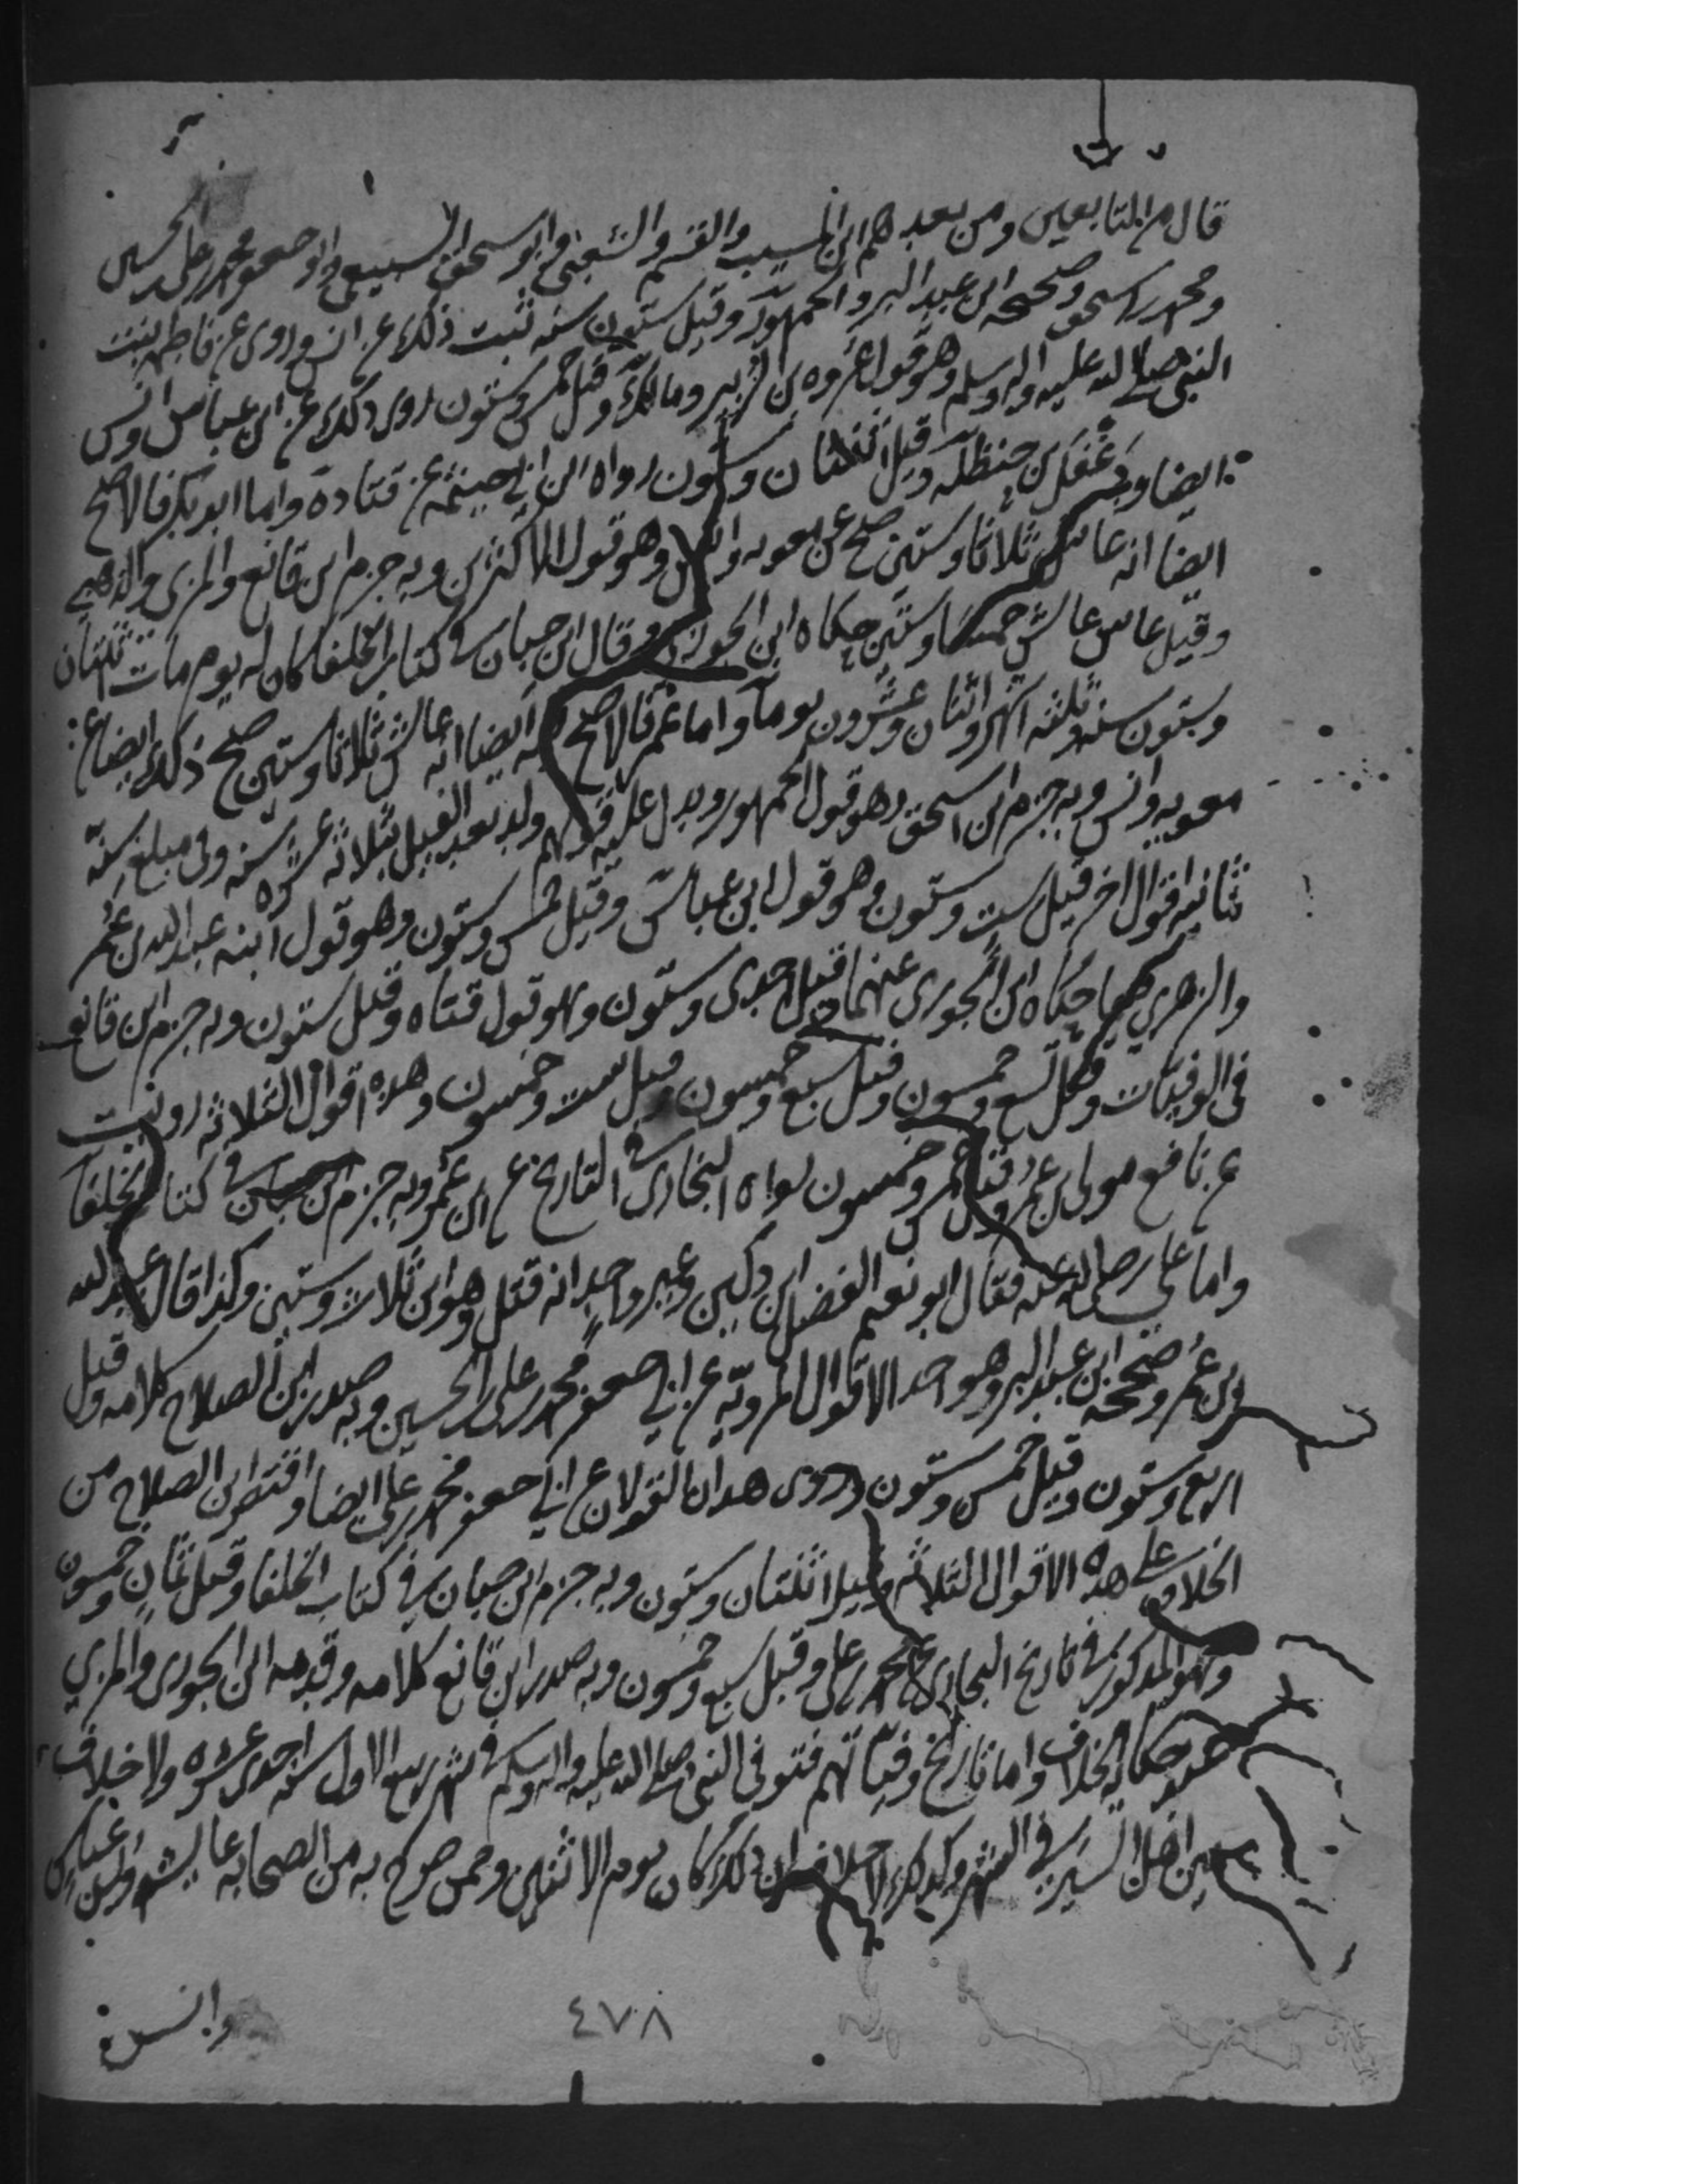 قال من التابعين ومن بعدهم ابن المسيب والقسم والشعبي وابو اسحق السبيعي وابو جعفر محمد بن علي بن الحسين
ومحمد بن اسحق وصححه ابن عبد البر والجمهور وقيل ستون سنه ثبت ذلك عن انس وروى عن فاطمه بنت
النبي صلى الله عليه واله وسلم وهو قول عروه بن الزبير ومالك وقيل خمس وستون روى ذلك عن ابن عباس وانس
ايضا ودغفل بن حنظله وقيل اثنتان وستون رواه ابن ابي خيثمه عن قتادة واما ابو بكر فالاصح
ايضا انه عاش ثلاثا وستين صح عن معويه وانس وهو قول الاكثرين وبه جزم ابن قانع والمزي والذهبي
وقيل عاش خمسا وستين حكاه ابن الجوزي وقال ابن حبان في كتاب الخلفا كان له يوم مات اثنتان
وستون سنه وثلثه اشهر واثنان وعشرون يوما واما عمر فالاصح ايضا انه عاش ثلاثا وستين صح ذلك ايضا عن
معويه وانس وبه جزم ابن اسحق وهو قول الجمهور ويدل عليه قولهم ولد بعد الفيل بثلاثه عشره سنه وفي مبلغ سنه
ثمانيه اقوال اخر قيل ست وستون وهو قول ابن عباس وقيل خمس وستون وهو قول ابنه عبد الله بن عمر
والزهري حكاه ابن الجوزي عنهما وقيل احدى وستون وهو قول قتاده وقيل ستون وبه جزم ابن قانع
في الوفيات وقيل تسع وخمسون وقيل سبع وخمسون وقيل ست وخمسون وهذه اقوال الثلاثه رويت
عن نافع مولى بن عمر وقيل خمس وخمسون رواه البخاري في التاريخ عن ابن عمر وبه جزم ابن حبان في كتاب الخلفا
واما علي رضى الله عنه فقال ابو نعيم الفضل بن دكين وغير واحد انه قتل وهو ابن ثلاث وستين وكذا قال عبد الله
بن عمر وصححه ابن عبد البر وهو احد الاقوال المرويه عن ابي جعفر محمد بن علي بن الحسين وبه صدر ابن الصلاح كلامه وقيل
اربع وستون وقيل خمس وستون وروى هذان القولان عن ابي جعفر محمد بن علي ايضا واقتصر ابن الصلاح من
الخلاف على هذه الاقوال الثلاثه وقيل اثنتان وستون وبه جزم ابن حبان في كتاب الخلفا وقيل ثمان وخمسون
وهو المذكور في تاريخ البخاري عن محمد بن علي وقيل سبع وخمسون وبه صدر ابن قانع كلامه وقدمه ابن الجوزي والمزي
عند حكايه الخلاف واما تاريخ وفياتهم فتوفي النبي صلى الله عليه واله وسلم في شهر ربيع الاول سنه احدى عشره ولا خلاف
بين اهل السير في الشهر وكذلك لا خلاف ان ذلك كان يوم الاثنين وممن صرح به من الصحابه عايشه وابن عباس
وانس
٤٧٨